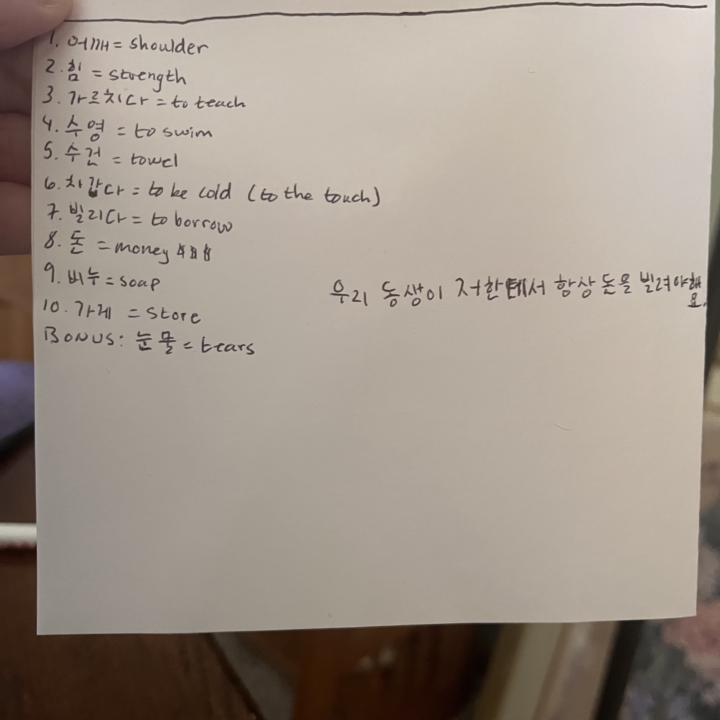 1. 어깨 = shoulder
2. 힘 = strength
3. 가르치다 = to teach
4. 수영 = to swim
5. 수건 = towel
6. 차갑다 = to be cold (to the touch)
7. 빌리다 = to borrow
8. 돈 = money $$$
9. 비누 = soap
우리 동생이 저한테서 항상 돈을 빌려야해요.
10. 가게 = store
BONUS: 눈물 = tears